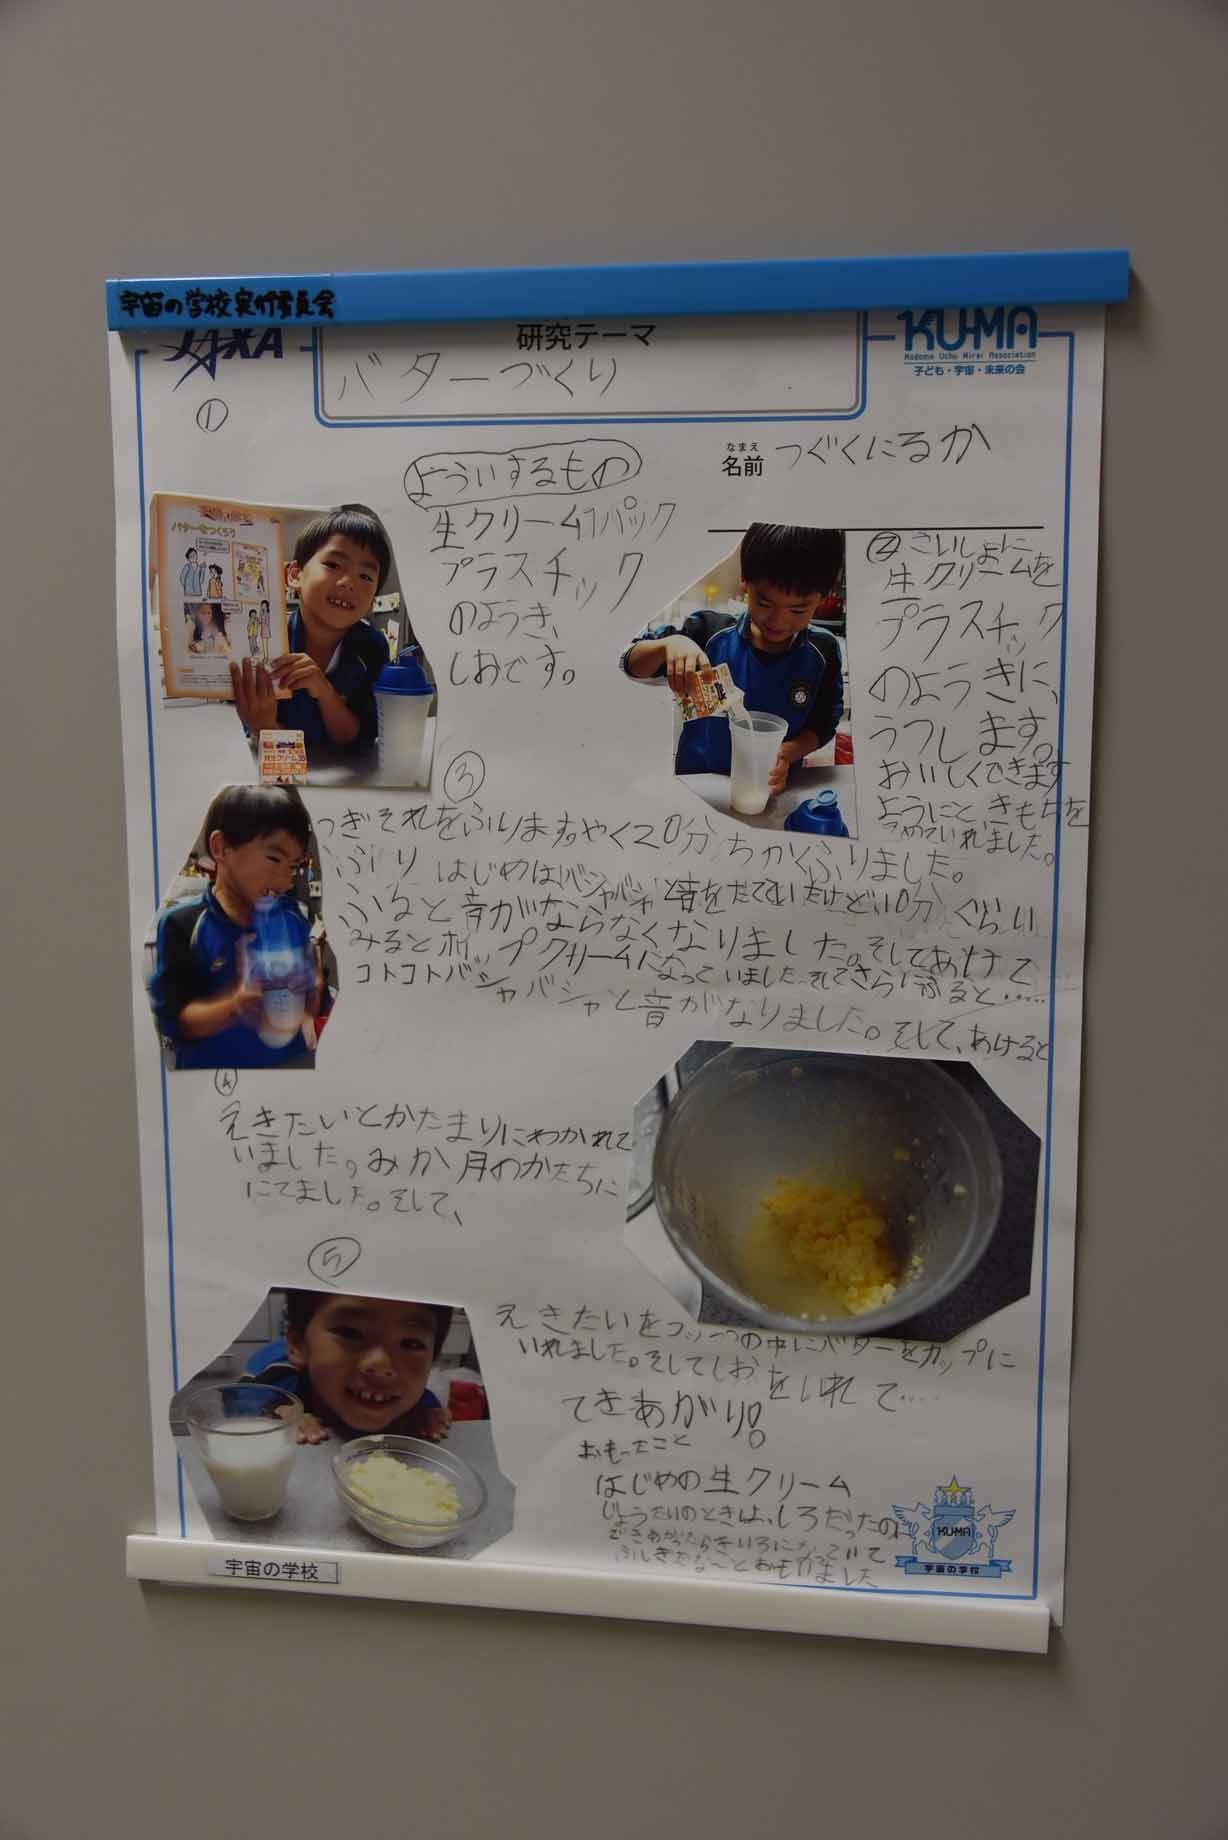 宇宙の学校実行委員会
JAXA
研究テーマ
バターづくり
KU-MA
Kodomo Uchu Mirai Association
子ども・宇宙・未来の会
①
なまえ
名前 つぐくにるか
よういするもの
生クリーム1パック
プラスチック
のようき、
しおです。
バターをつくろう
②さいしょに
生クリームを
プラスチック
のようきに、
うつします。
おいしくできます
ようにと、きもちを
こめていれました。
③
つぎそれをふります。やく20分ちかくふりました。
はじめはバシャバシャと音をたていたけど、10分ぐらい
ふると音がならなくなりました。そしてあけて
みるとホイップクリームになっていました。そしてさらにふると……
コトコトバシャバシャと音がなりました。そして、あけると
④
えきたいとかたまりにわかれて
いました。みか月のかたちに
にてました。そして、
⑤
えきたいをコップの中にバターをカップに
いれました。そしてしおをいれて‥‥
できあがり!
おもったこと
はじめの生クリーム
じょうたいのときは、しろだったのに
できあがったらきいろになっていて
ふしぎだなことおもいました
KU-MA
宇宙の学校
宇宙の学校